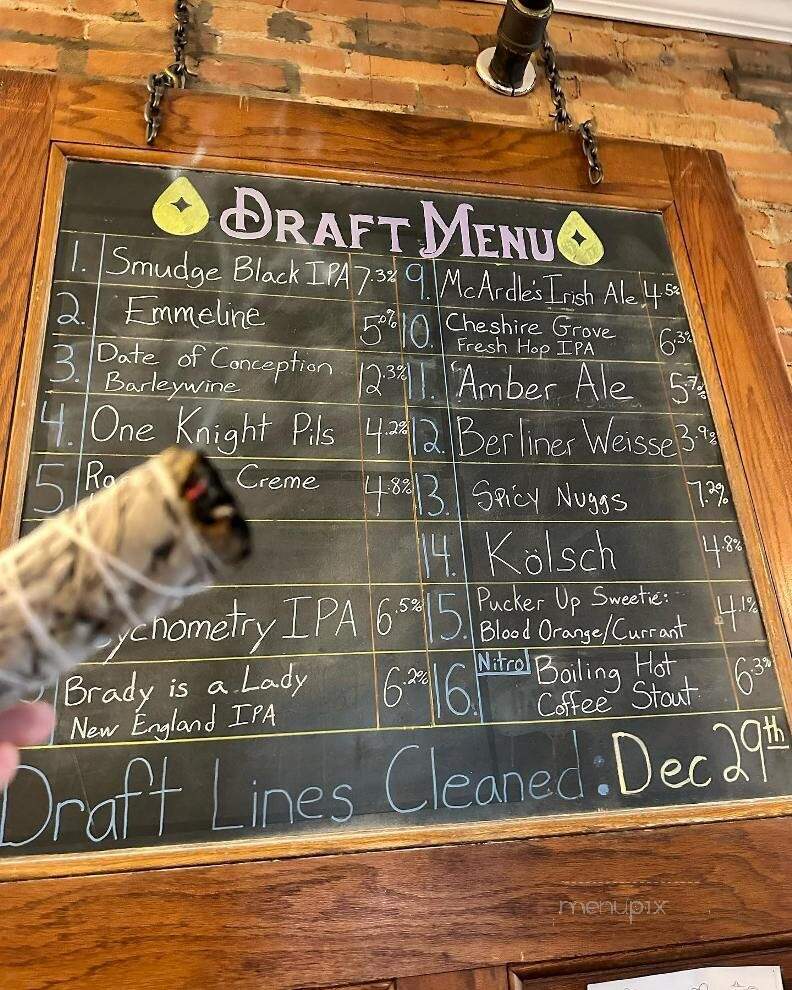 Draft Menu
1. Smudge Black IPA 7.3%
2. Emmeline 5.0%
3. Date of Conception
Barleywine 12.3%
4. One Knight Pils 4.2%
5 Creme 4.8%
IPA 6.5%
Brady is a Lady
New England IPA 6.2%
9. McArdle's Irish Ale 4.5%
10. Cheshire Grove
Fresh Hop IPA 6.3%
11. Amber Ale 5.7%
12. Berliner Weisse 3.9%
13. Spicy Nuggs 7.2%
14. Kölsch 4.8%
15. Pucker Up Sweetie:
Blood Orange/Currant 4.1%
16. Nitro Boiling Hot
Coffee Stout 6.3%
Draft Lines Cleaned: Dec 29th
menupix